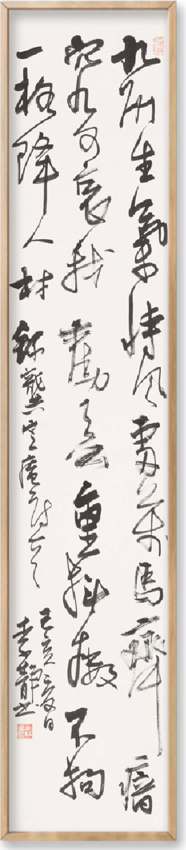 九州生氣恃風雷萬馬齊瘖
究可哀我勸天公重抖擻不拘
一格降人材 錄龔定庵詩
己亥夏日
李靜